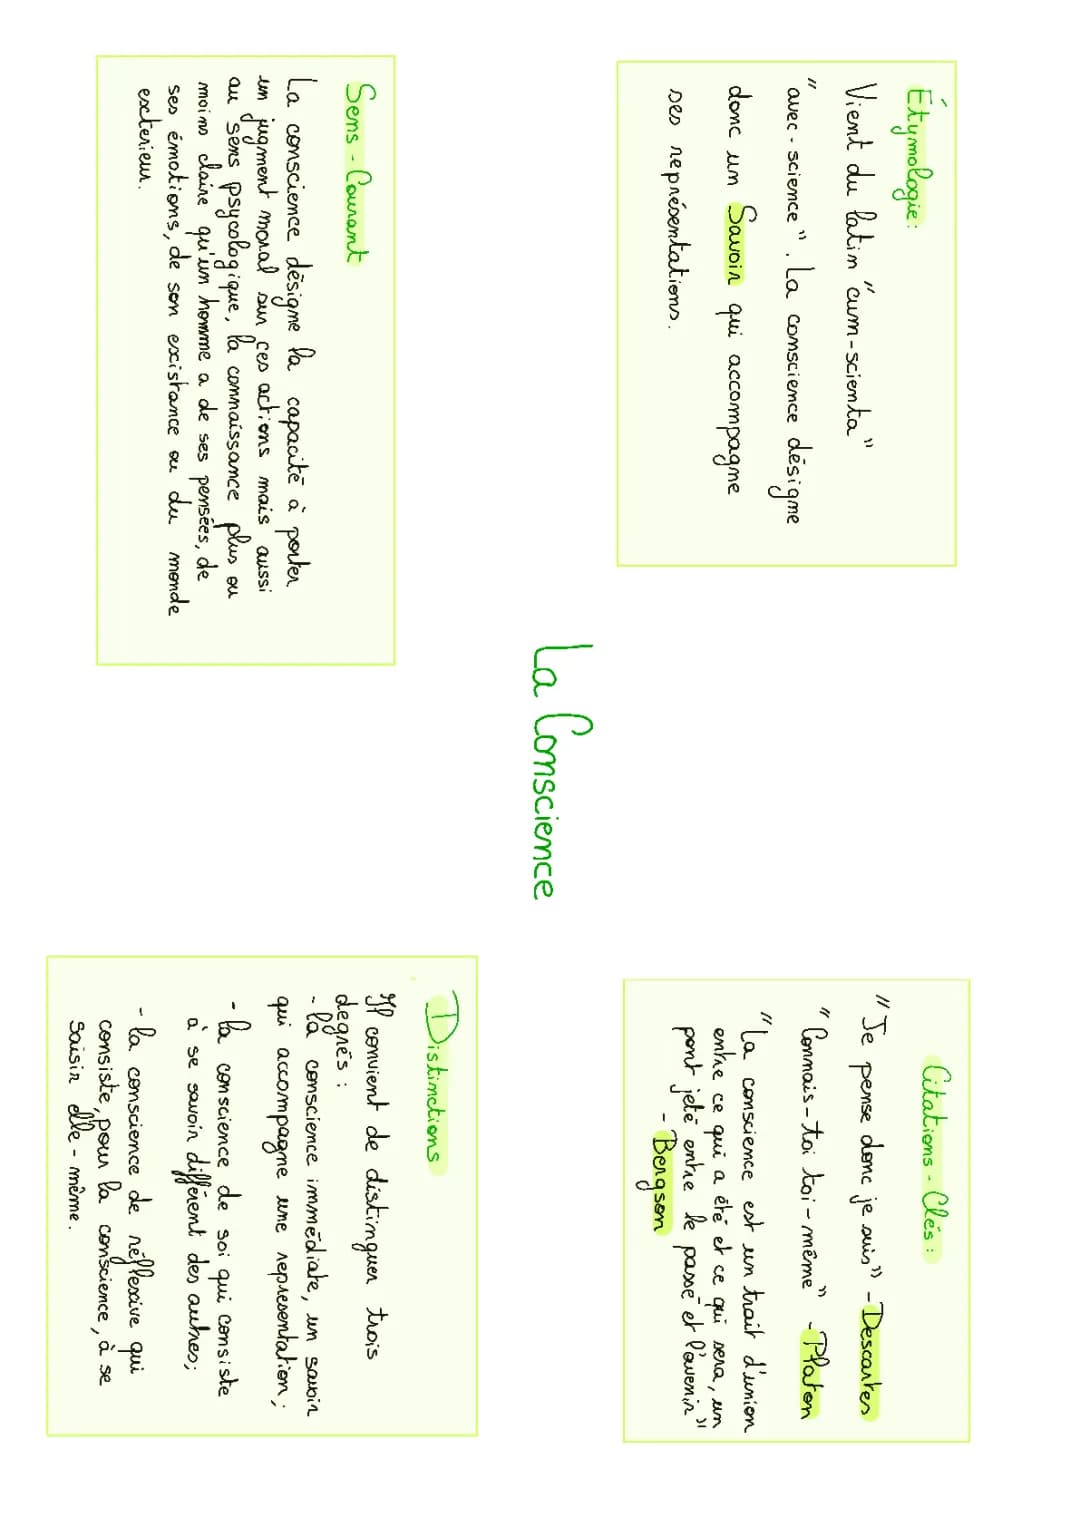 La Conscience
Étymologie :
Vient du latin "cum-scienta"
"avec - science". La conscience désigne
donc un Savoir qui accompagne
ses représentations.
Citations - Clés :
"Je pense donc je suis" - Descartes
"Connais-toi toi-même" - Platon
"La conscience est un trait d'union
entre ce qui a été et ce qui sera, un
pont jeté entre le passé et l'avenir"
- Bergson
Sens - Courant
La conscience désigne la capacité à porter
un jugment moral sur ces actions mais aussi
au sens psycologique, la connaissance plus ou
moins claire qu'un homme a de ses pensées, de
ses émotions, de son existance ou du monde
exterieur.
Distinctions
Il convient de distinguer trois
degrés :
- la conscience immédiate, un savoir
qui accompagne une representation ;
- la conscience de soi qui consiste
à se savoir différent des autres;
- la conscience de réflexive qui
consiste, pour la conscience, à se
saisir elle-même.